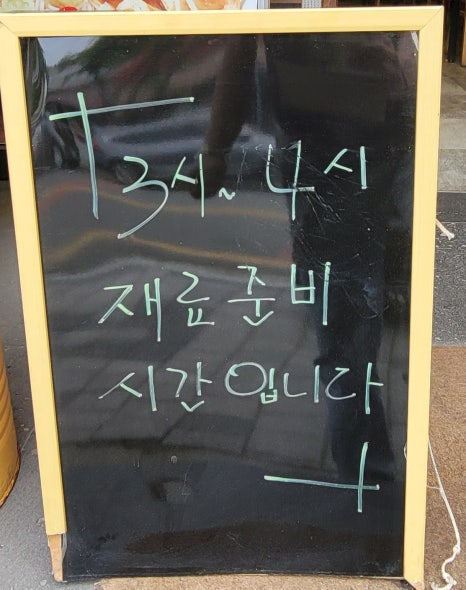 3시~4시
재료준비
시간입니다